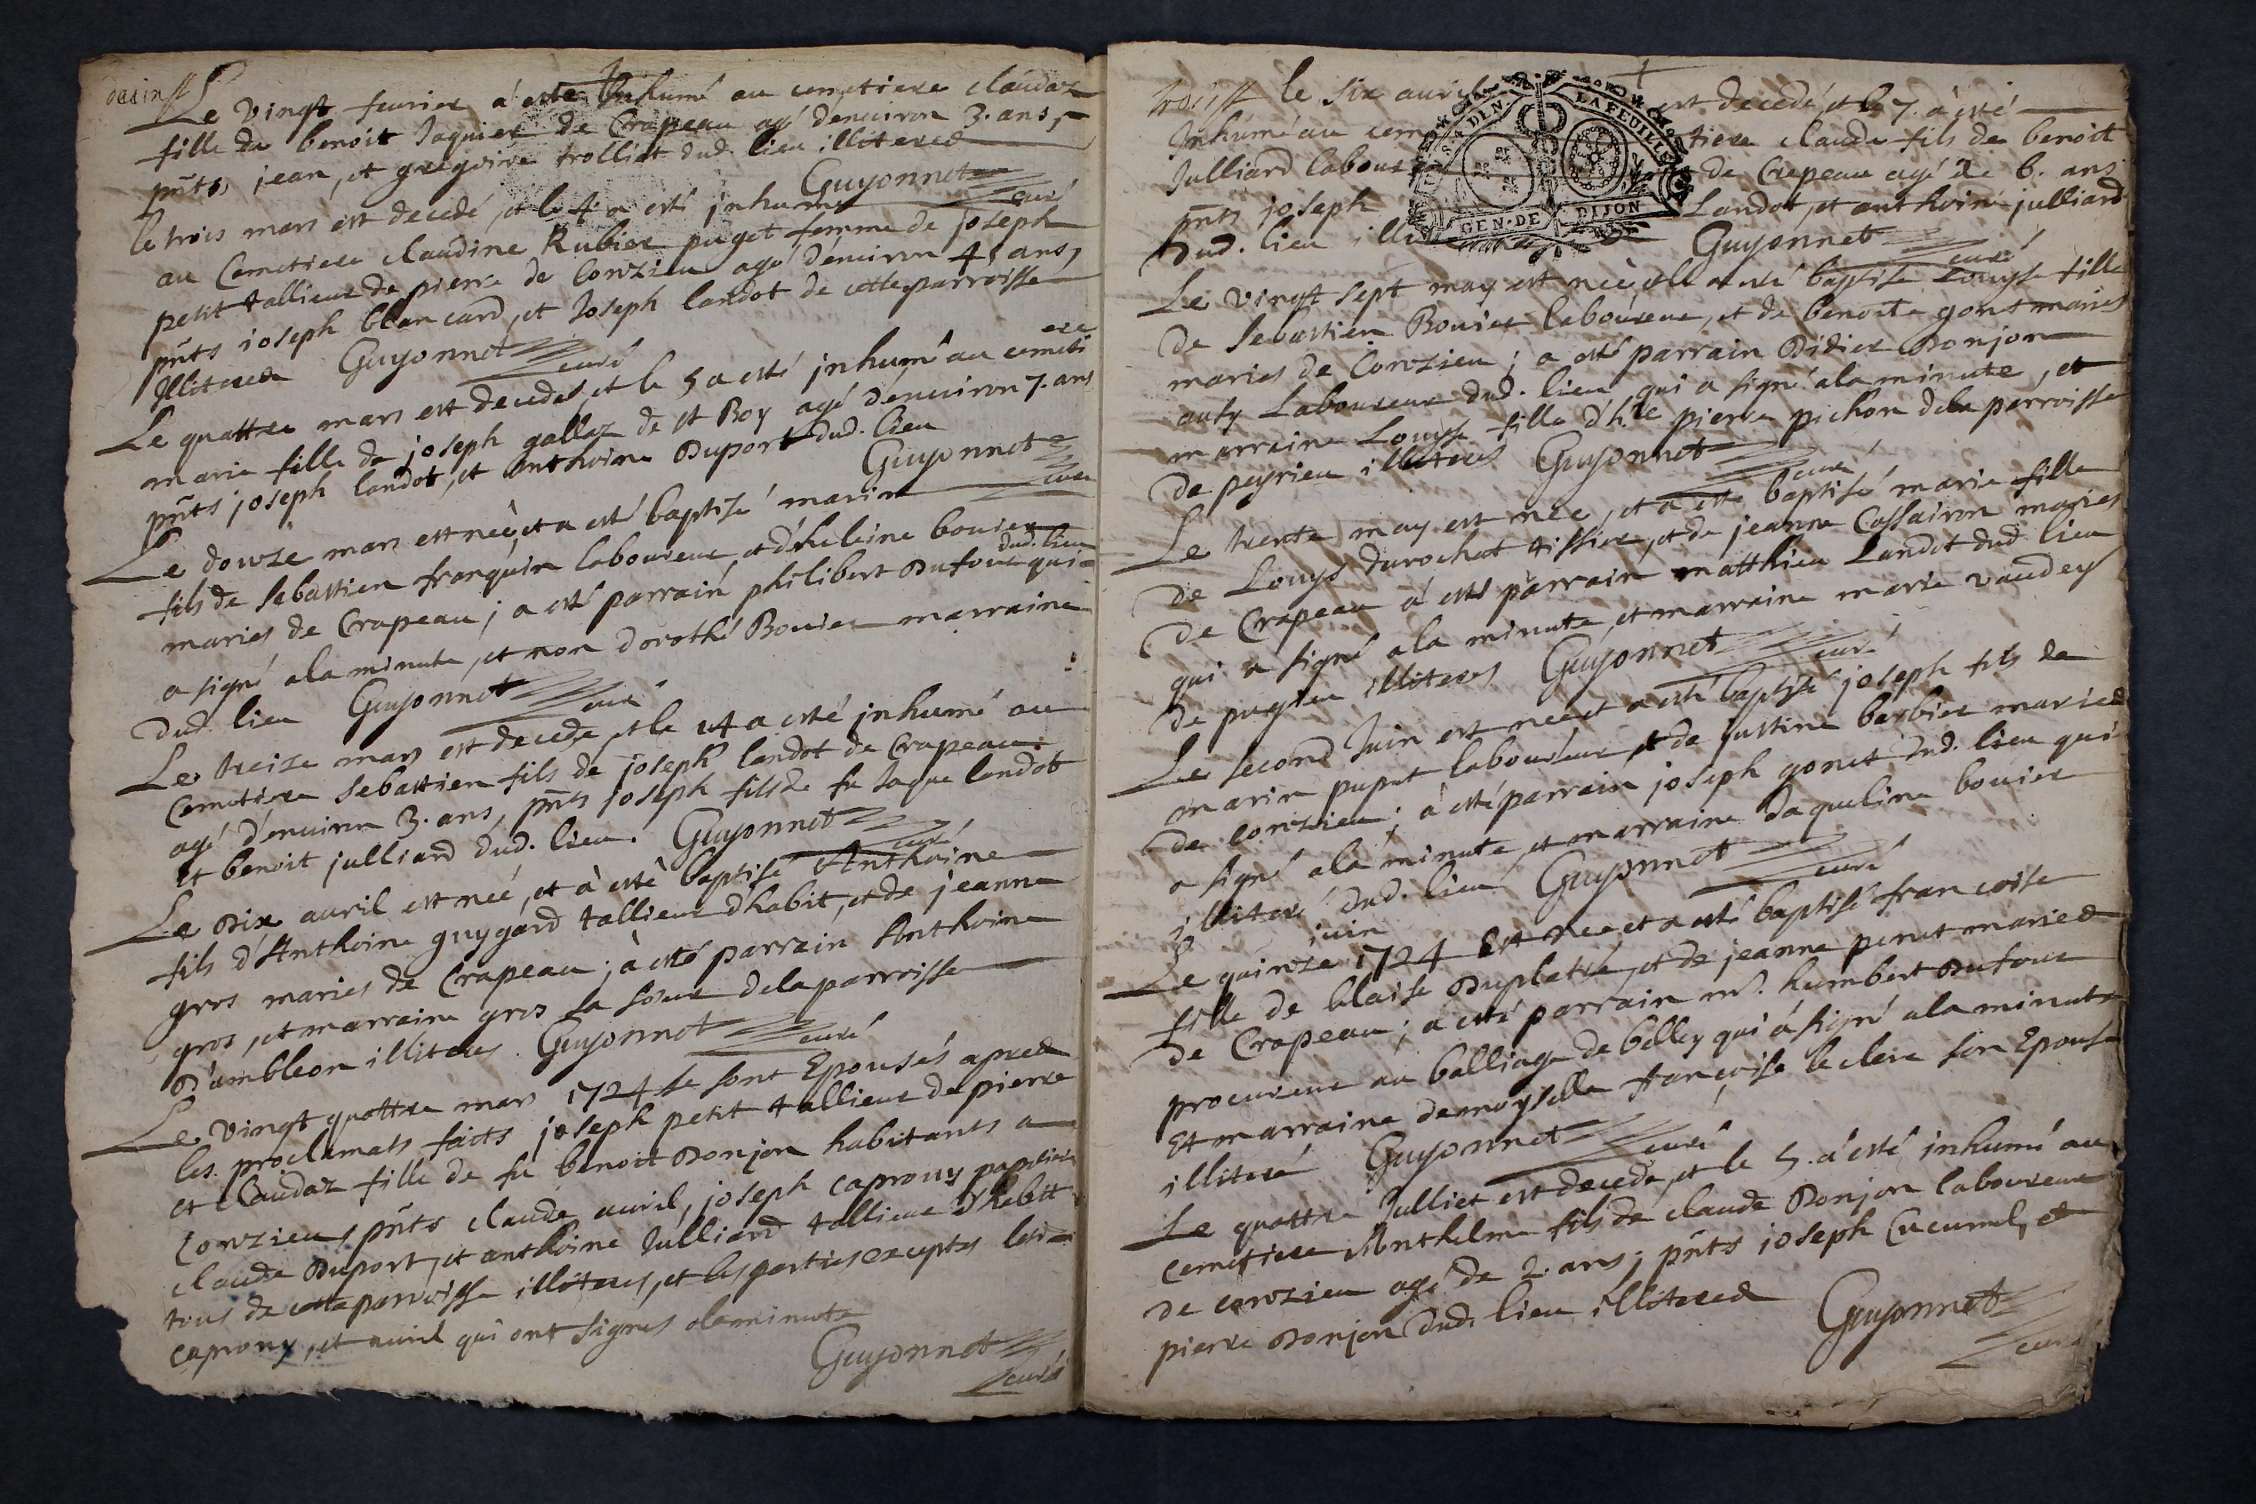 Le vingt feurier a esté Inhumé au cemetiere claudaz
fille de benoit Jaquier de Crapeau agé denuiron 3. ans,
pnts, jean, et gregoire trolliet dud. lieu illiteres
Guyonnet curé
le trois mars est decedé, et le 4 a esté inhumé
au Cemetiere claudine Rubier puget femme de joseph
petit tallieur de pierre de Conzieu agé denuiron 45 ans,
pnts joseph blancard, et Joseph landot de cette parroisse
Illiteres Guyonnet curé
Le quattre mars est decedes, et le 5 a esté inhumé au cemeti
ere
marie fille de joseph gallaz de st Boy agé denuiron 7. ans
pnts joseph landot, et anthoine Duport dud. lieu
Guyonnet curé
Le douze mars est neè, et a esté baptisé marin
fils de sebastien franquin laboureur, et d'heleine bouier
maries de Crapeau; a esté parrain philibert Dufour dud. lieu qui
a signé a la minute, et non dorothé Bouier marraine
dud. lieu Guyonnet curé
Le treize mars est decede, et le 14 a esté inhumé au
Cemetiere sebastien fils de joseph landot de Crapeau
agé d'enuiron 3. ans, pnts joseph fils de fu Jaque landot
et benoit julliard dud. lieu. Guyonnet curé
Le Dix auril est neé, et à esté baptisé Anthoine
fils d'Anthoine guygard tallieur d'habit, et de jeanne
gros maries de Crapeau; à esté parrain Anthoine
gros, et marraine gros sa soeur de la parroisse
D'ambleon illiteres. Guyonnet curé
Le vingt quattre mars 1724 se sont Epousés apres
les proclamats faits joseph petit tallieur de pierre
et Claudaz fille de fu benoit Donjon habitants a
Conzieu, pnts claude auril, joseph caprony
claude Duport, et anthoine Julliard tallieur d'habit
tous de cette parroisse illiteres, et les parties exceptes
caprony, et auril qui ont signes a la minute
Guyonnet curé
le six auril est decedé, et le 7. à esté
Inhumé au cemetiere claude fils de benoit
Julliard labour de Crapeau agé de 6. ans
pnts joseph Landot, et anthoine julliard
Dud. lieu Guyonnet curé
GEN·DE DIJON
LA FEUILLE
Le vingt sept may est neè, et a esté baptise Louyse fille
de sebastien Bouier laboureur, et de benoite gonet maries
maries de Conzieu; a esté parrain Didier Donjon
aussy Laboureur dud. lieu qui a signé a la minute, et
marraine Louyse fille d'h.le pierre pichon de la parroisse
de peyrieu illiteres Guyonnet curé
Le trente may est neé, et a esté baptisé marie fille
de Louys durochat tissier, et de jeanne Cassairon maries
de Crapeau a esté parrain matthieu Landot dud lieu
qui a signé a la minute, et marraine marie vaudey
de pugieu illiteres Guyonnet curé
Le second Juin est neé et a esté baptisé joseph fils de
marin puget laboureur et de justine barbier maries
de conzieu; à esté parrain joseph gonet dud. lieu qui
a signé a la minute, et marraine Jaqueline bouier
illiteré dud. lieu Guyonnet curé
juin
Le quinze 1724 Est neé et a esté baptisé francoise
fille de blaise Duplatre, et de jeanne peret maries
de Crapeau; a esté parrain mr. humbert Dufour
procureur au balliage de belley qui á signé a la minute
Et marraine demoyselle françoise le clerc son Epouse
illiteré Guyonnet curé
Le quattre Julliet est decedé, et le 5. á esté inhumé au
cemetiere Anthelme fils de claude Donjon laboureur
de conzieu agé de 2. ans; pnts joseph Cucumel, et
pierre Donjon dud. lieu illiteres
Guyonnet curé